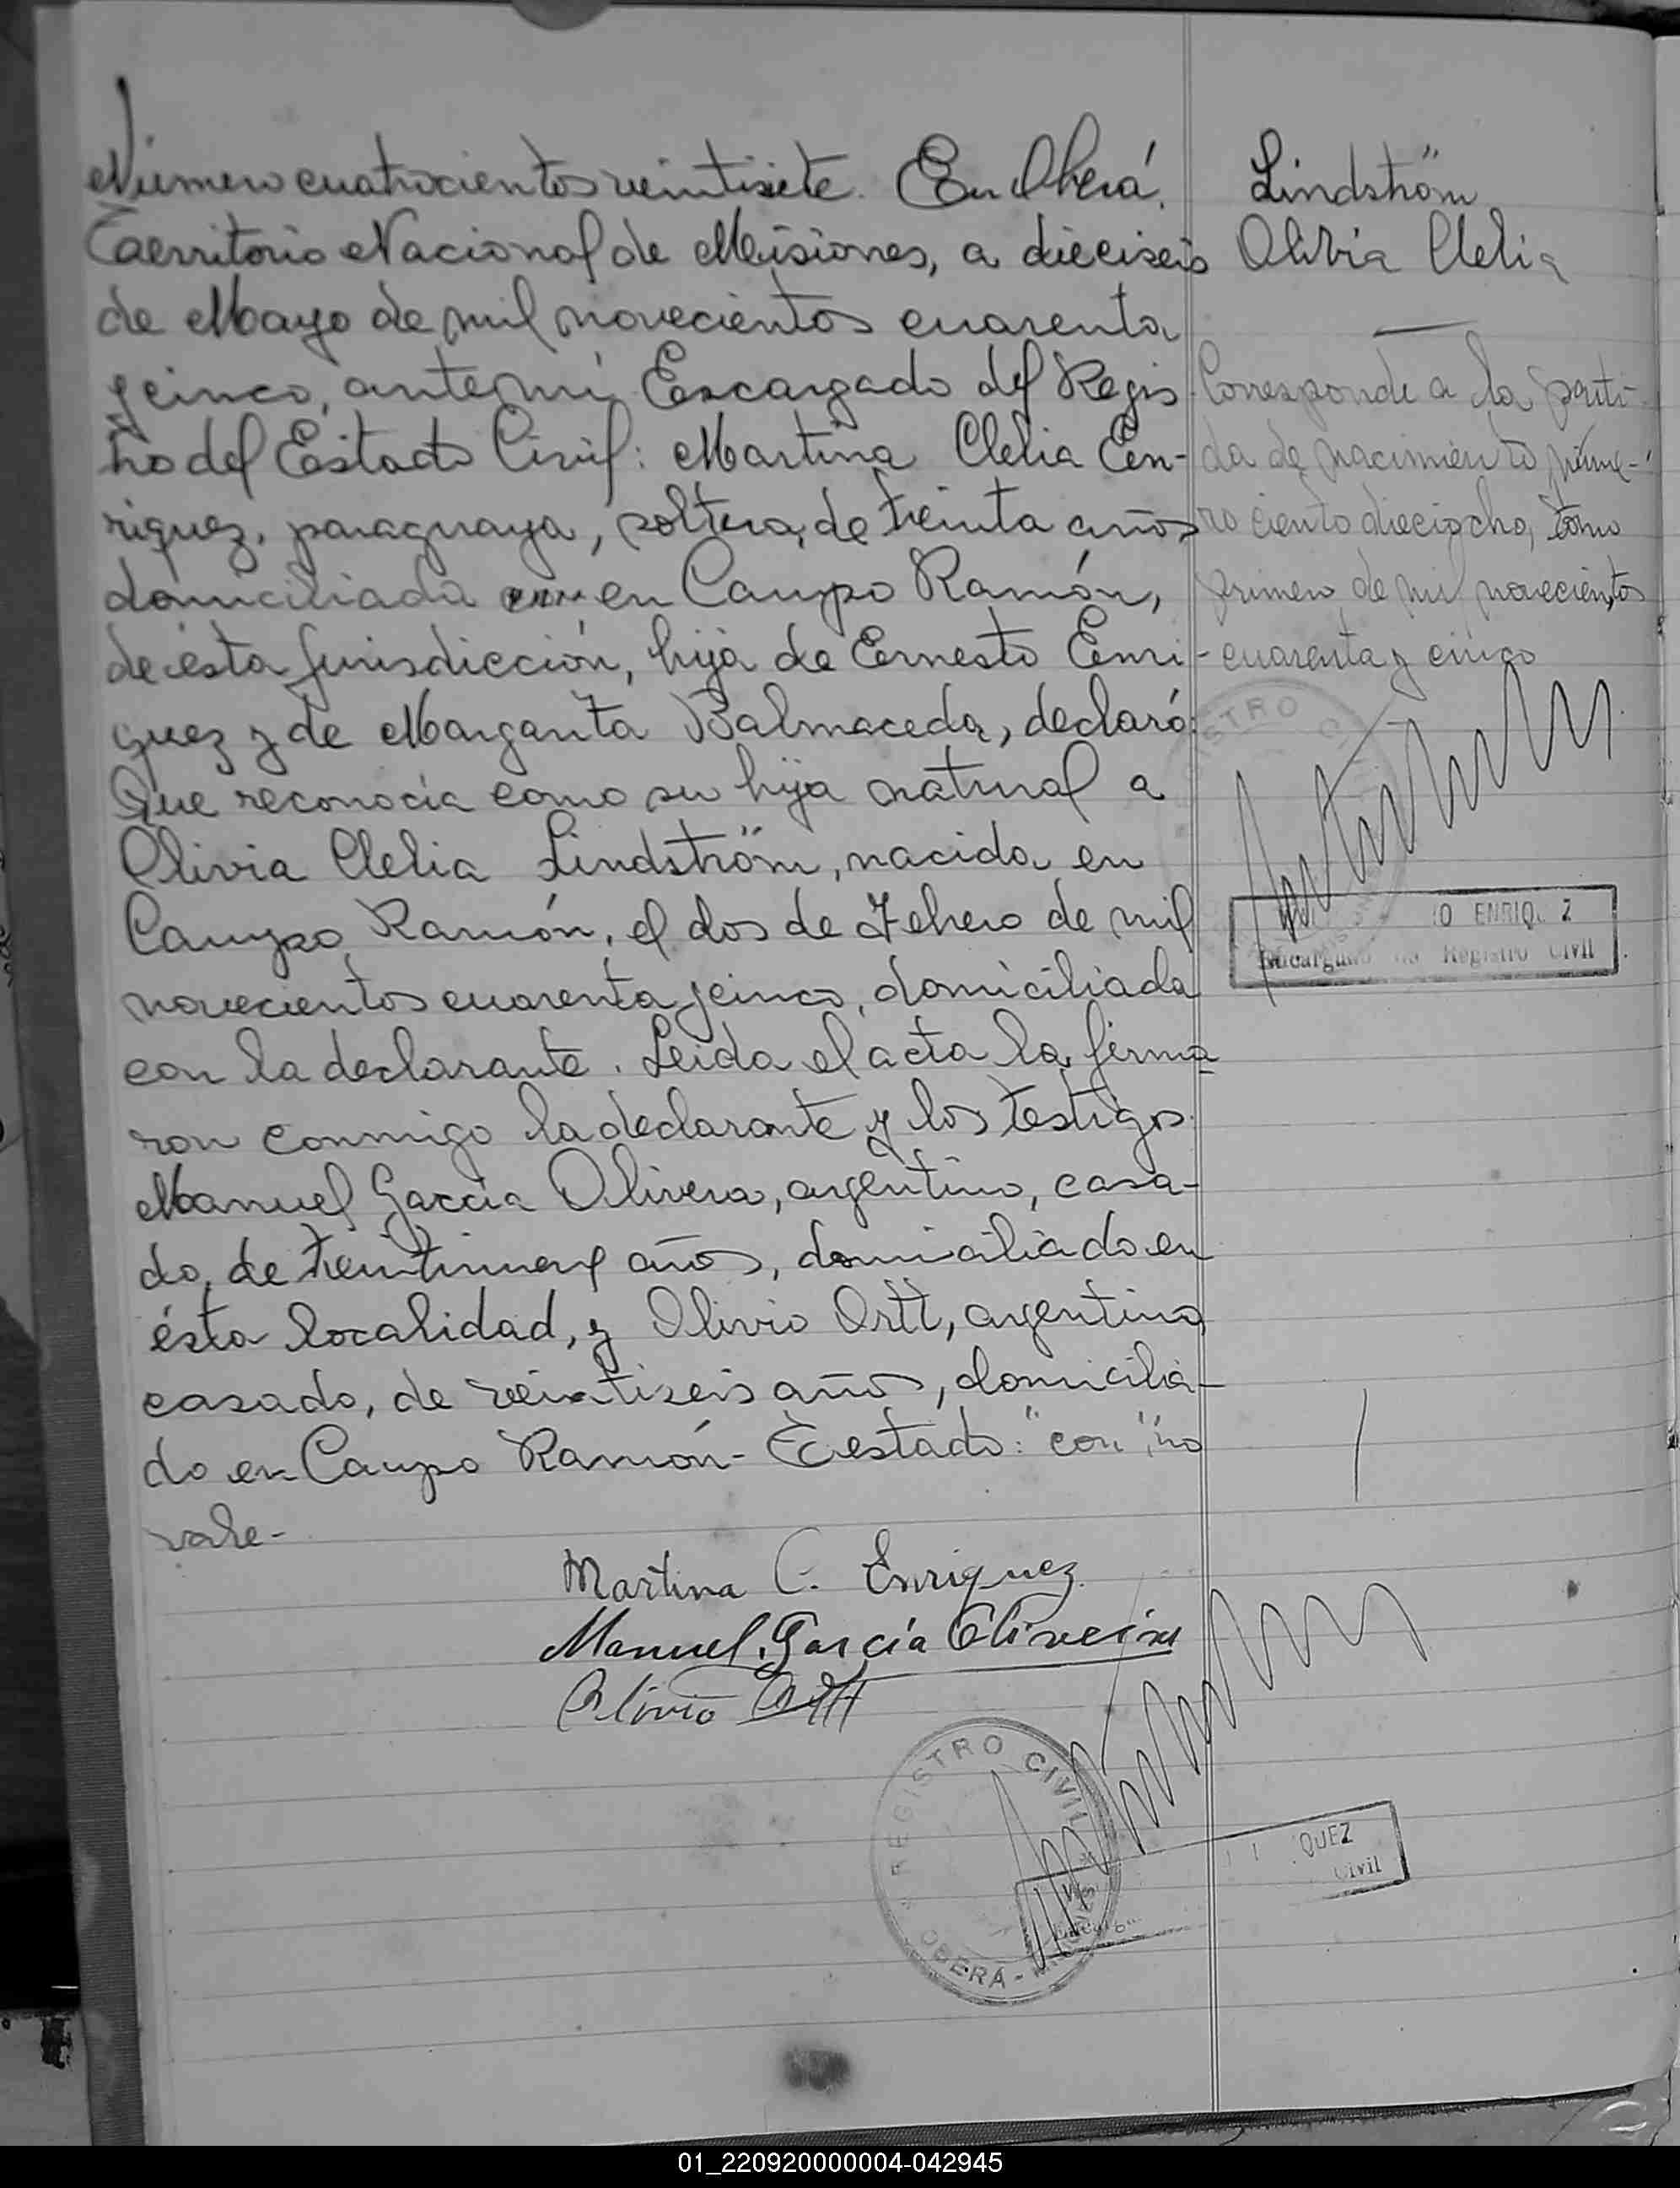 Número cuatrocientos veintisiete. En Oberá,
Territorio Nacional de Misiones, a dieciseis
de Mayo de mil novecientos cuarenta
y cinco, ante mí Encargado del Regis
tro del Estado Civil: Martina Clelia En-
riquez, paraguaya, soltera, de treinta años
domiciliada en Campo Ramón,
de ésta jurisdicción, hija de Ernesto Enri-
quez y de Margarita Balmaceda, declaró:
Que reconocía como su hija natural a
Olivia Clelia Lindström, nacida en
Campo Ramón, el dos de Febrero de mil
novecientos cuarenta y cinco, domiciliada
con la declarante. Leida el acta la firma
ron conmigo la declarante y los testigos:
Manuel García Olivera, argentino, casa-
do, de treintinueve años, domiciliado en
ésta localidad, y Olivio Ortt, argentino,
casado, de veintiseis años, domicilia-
do en Campo Ramón- Testado: "con", no
vale-
Martina C. Enriquez
Manuel García Oliveira
Olivio Ortt
Lindström
Olivia Clelia
Corresponde a la parti-
da de nacimiento núme-
ro ciento dieciocho, tomo
primero de mil novecientos
cuarenta y cinco
REGISTRO CIVIL
O ENRIQUEZ
Encargado de Registro Civil
REGISTRO CIVIL
OBERA - MISIONES
QUEZ
Civil
01_220920000004-042945